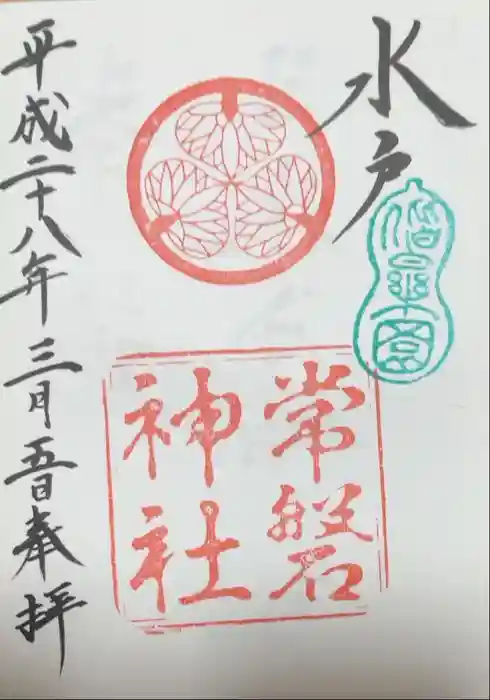 水戸
偕楽園
常磐
神社
平成二十八年三月五日奉拝